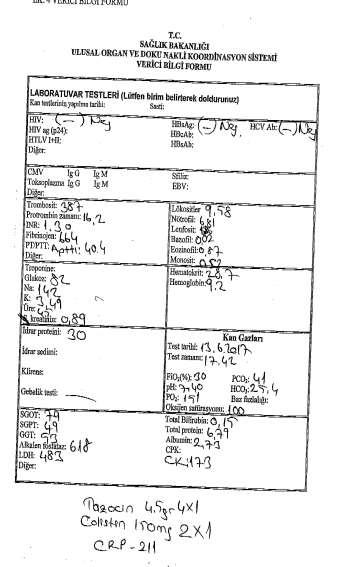 EK: 4 VERİCİ BİLGİ FORMU
T.C.
SAĞLIK BAKANLIĞI
ULUSAL ORGAN VE DOKU NAKLİ KOORDİNASYON SİSTEMİ
VERİCİ BİLGİ FORMU
LABORATUVAR TESTLERİ (Lütfen birim belirterek doldurunuz)
Kan testlerinin yapılma tarihi: Saati:
HIV: (-) Neg HBsAg: (-) Neg. HCV Ab: (-) Neg
HIV ag (p24): HBcAb:
HTLV I+II: HBsAb:
Diğer:
CMV Ig G Ig M Sfiliz:
Toksoplazma Ig G Ig M EBV:
Diğer:
Trombosit: 387
Protrombin zamanı: 16,2
INR: 1.30
Fibrinojen: 664
PT/PTT: Aptti: 40.4
Diğer:
Lökositler 9,58
Nötrofil: 6.81
Lenfosit:
Bazofil: 0.02
Eozinofil: 0.87
Monosit: 0.52
Troponine:
Glukoz: 82
Na: 142
K: 3,49
Üre: 45
kreatinin: 0,89
Hematokrit: 28,7
Hemoglobin: 9.2
İdrar proteini: 30
İdrar sedimi:
Klirens:
Gebelik testi:
Kan Gazları
Test tarihi: 13.6.2017
Test zamanı: 17.42
FiO2(%): 30 PCO2: 41
pH: 7,40 HCO3: 25,4
PO2: 151 Baz fazlalığı:
Oksijen satürasyonu: 100
SGOT: 79
SGPT: 49
GGT: 53
Alkalen fosfataz: 618
LDH: 483
Diğer:
Total Bilirubin: 0,15
Total protein: 6,79
Albumin: 2,73
CPK:
CK: 173
Tazocin 4,5gr 4x1
Colisten 150mg 2X1
CRP-211